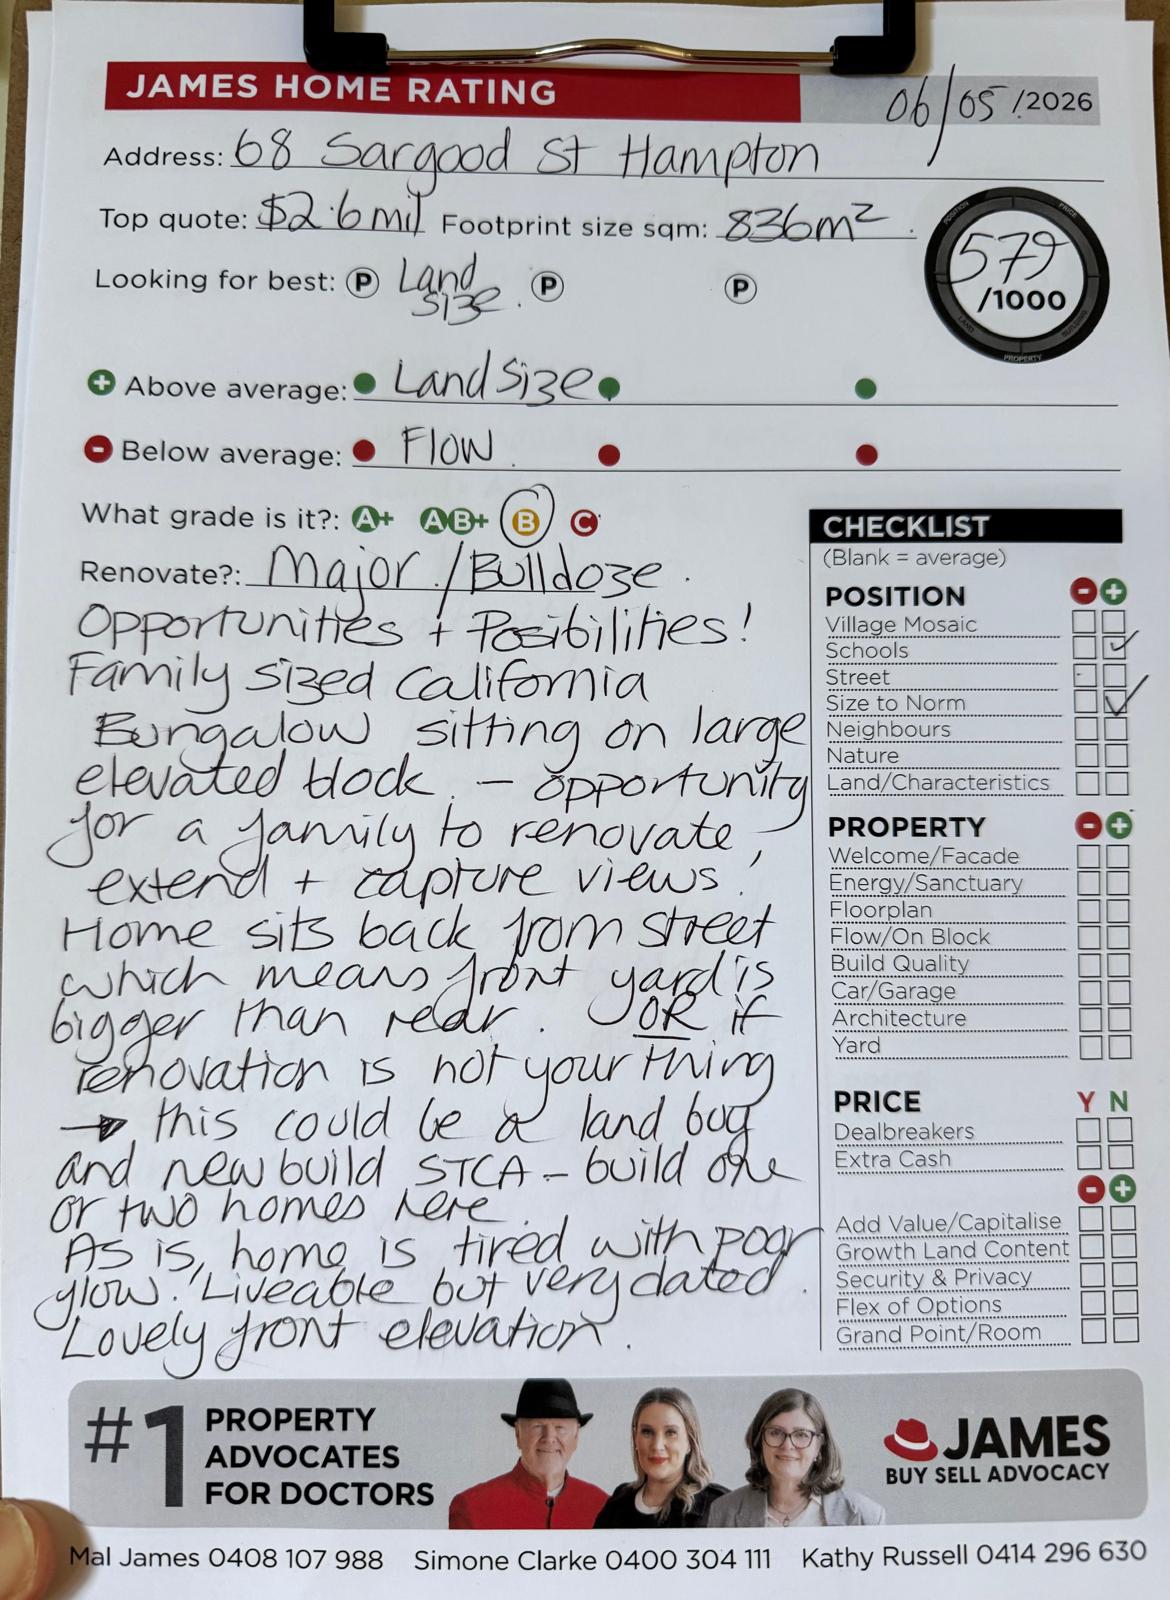 JAMES HOME RATING
06/05/2026
Address: 68 Sargood St Hampton
Top quote: $2.6mil Footprint size sqm: 836m²
579
/1000
Looking for best: P Land size P P
+ Above average: Land size
- Below average: Flow
What grade is it?: A+ AB+ B C
Renovate?: Major / Bulldoze
Opportunities + Posibilities!
Family sized California
Bungalow sitting on large
elevated block. - opportunity
for a family to renovate,
extend + capture views!
Home sits back from street
which means front yard is
bigger than rear. OR if
renovation is not your thing
→ this could be a land buy
and new build STCA - build one
or two homes here.
As is, home is tired with poor
flow. Liveable but very dated.
Lovely front elevation.
CHECKLIST
(Blank = average)
POSITION - +
Village Mosaic
Schools ✓
Street
Size to Norm ✓
Neighbours
Nature
Land/Characteristics
PROPERTY - +
Welcome/Facade
Energy/Sanctuary
Floorplan
Flow/On Block
Build Quality
Car/Garage
Architecture
Yard
PRICE Y N
Dealbreakers
Extra Cash
- +
Add Value/Capitalise
Growth Land Content
Security & Privacy
Flex of Options
Grand Point/Room
#1 PROPERTY
ADVOCATES
FOR DOCTORS
JAMES
BUY SELL ADVOCACY
Mal James 0408 107 988 Simone Clarke 0400 304 111 Kathy Russell 0414 296 630